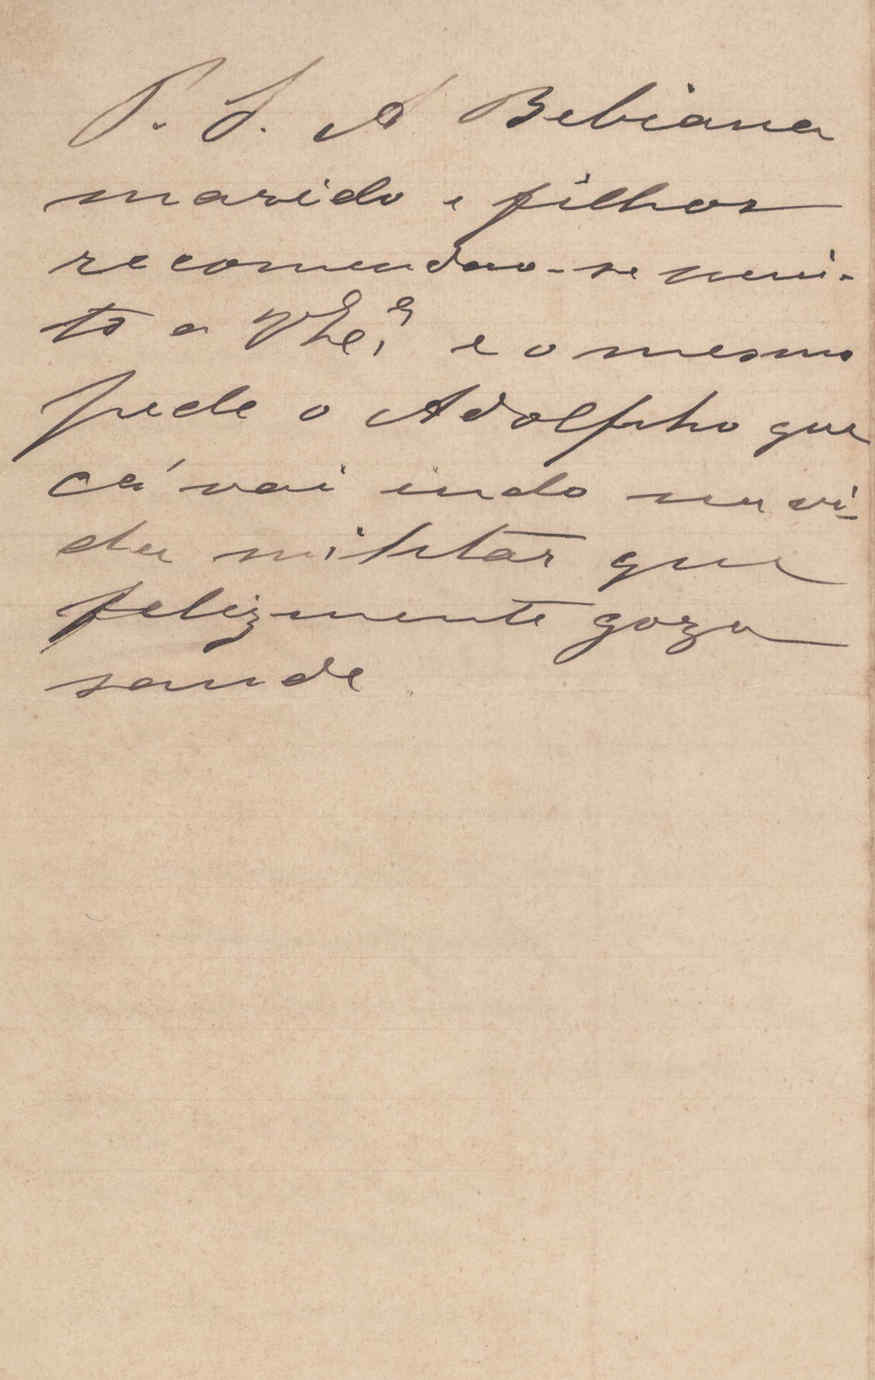 P. S. A Bebiana
marido e filhos
recomendao-se mui-
to a VExcª e o mesmo
pede o Adolpho que
cá vai indo na vi-
da militar que
felizmente goza
saude